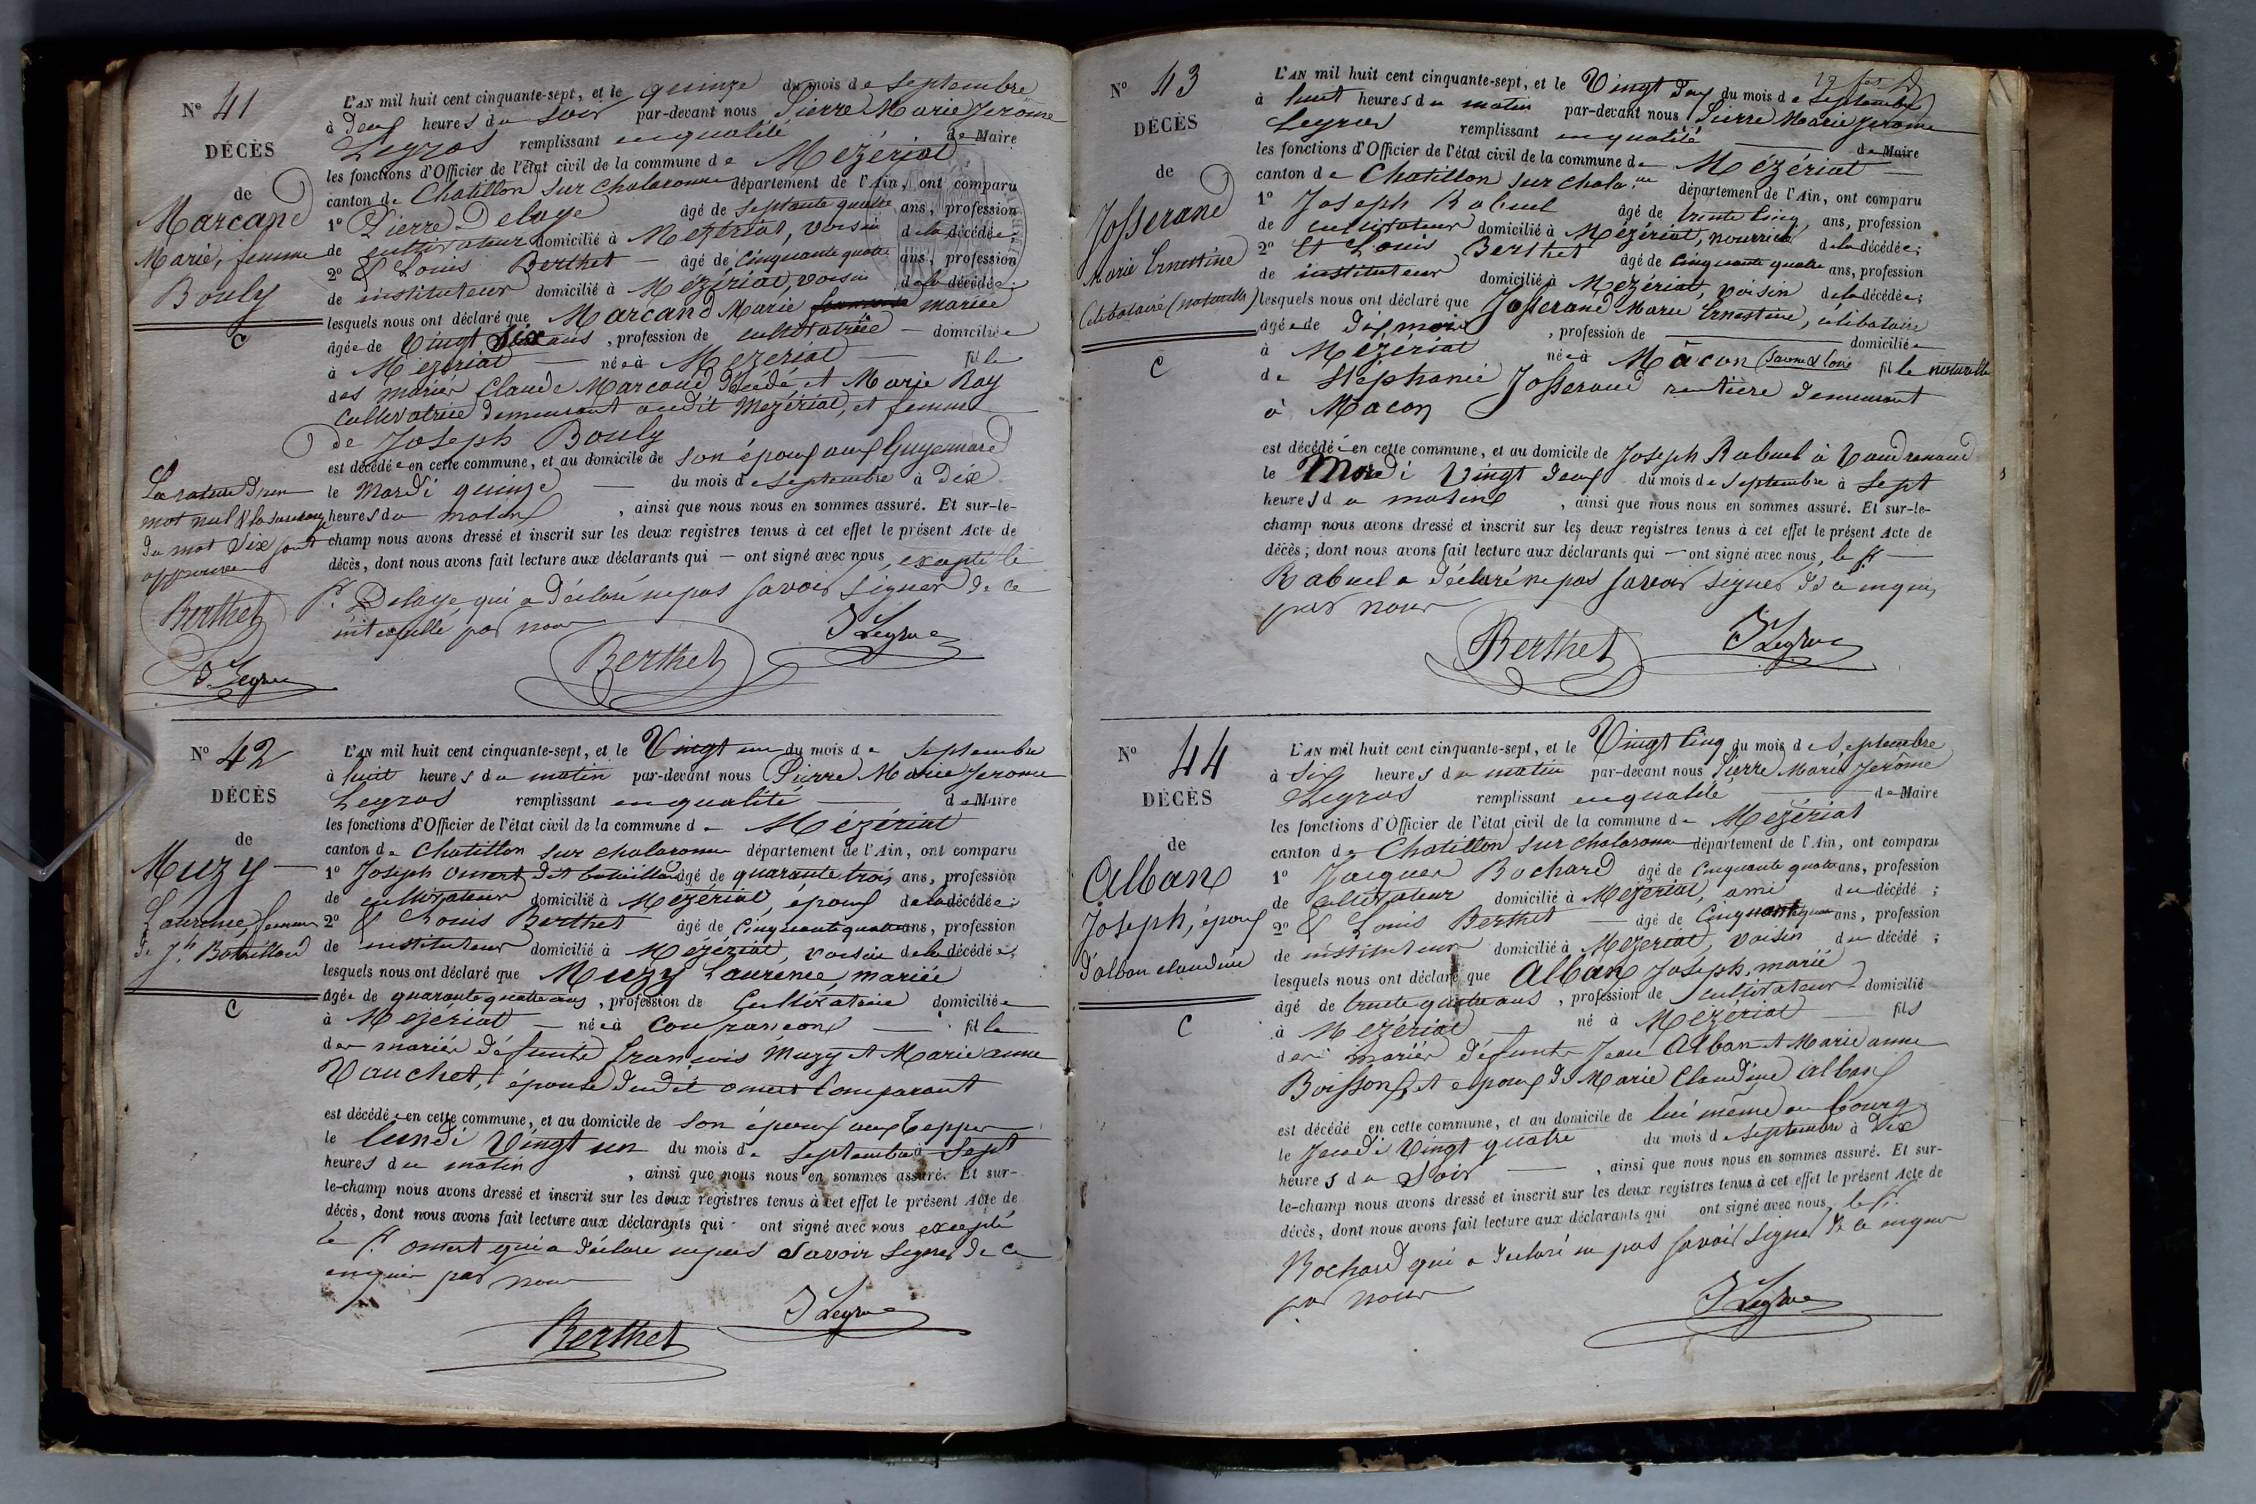 N° 41
DÉCÈS
de
Marcand
Marie, femme
Bouly
C
L'AN mil huit cent cinquante-sept, et le quinze du mois de Septembre
à deux heures du soir par-devant nous Pierre Marie Jerôme
Legros remplissant en qualité de Maire
les fonctions d'Officier de l'état civil de la commune de Mézériat
canton de Chatillon sur chalaronne département de l'Ain, ont comparu
1° Pierre Delaye âgé de septante quatre ans, profession
de cultivateur domicilié à Mézériat, voisin de la décédée;
2° & Louis Berthet âgé de cinquante quatre ans, profession
de instituteur domicilié à Mézériat, voisin de la décédée;
lesquels nous ont déclaré que Marcand Marie mariée
âgée de Vingt Six ans, profession de cultivatrice domiciliée
à Mézériat née à Mézériat fille
des mariés Claude Marcand décédé et Marie Ray
Cultivatrice demeurant audit Mézériat, et femme
de Joseph Bouly
est décédée en cette commune, et au domicile de son époux aux Guyennard
le Mardi quinze du mois de Septembre à Dix
heures du matin, ainsi que nous nous en sommes assuré. Et sur-le-
champ nous avons dressé et inscrit sur les deux registres tenus à cet effet le présent Acte de
décès, dont nous avons fait lecture aux déclarants qui ont signé avec nous, excepté le
Sr. Delaye qui a déclaré ne pas savoir signer de ce
interpellé par nous
La rature d'un
mot nul & la surcharge
du mot Six sont
approuvée
Berthet
J Legros
Berthet
J Legros
N° 42
DÉCÈS
de
Muzy
Laurence, femme
de Jh. Bataillard
C
L'AN mil huit cent cinquante-sept, et le Vingt un du mois de Septembre
à huit heures du matin par-devant nous Pierre Marie Jerome
Legros remplissant en qualité de Maire
les fonctions d'Officier de l'état civil de la commune de Mézériat
canton de Chatillon sur chalaronne département de l'Ain, ont comparu
1° Joseph Omert dit bataillard âgé de quarante trois ans, profession
de cultivateur domicilié à Mézériat, époux de la décédée;
2° & Louis Berthet âgé de Cinquante quatre ans, profession
de instituteur domicilié à Mézériat, voisin de la décédée;
lesquels nous ont déclaré que Muzy Laurence, mariée
âgée de quarante quatre ans, profession de Cultivatrice domiciliée
à Mézériat née à Confrançon fille
des mariés défunts françois Muzy & Marie anne
Vauchet, épouse dudit omert Comparant
est décédée en cette commune, et au domicile de son époux aux Teppes
le lundi Vingt un du mois de Septembre à Sept
heures du matin, ainsi que nous nous en sommes assuré. Et sur-
le-champ nous avons dressé et inscrit sur les deux registres tenus à cet effet le présent Acte de
décès, dont nous avons fait lecture aux déclarants qui ont signé avec nous excepté
le Sr. omert qui a déclaré ne pas Savoir Signer de ce
enquis par nous
Berthet
J Legros
N° 43
DÉCÈS
de
Josserand
Marie Ernestine
Célibataire (naturelle)
C
L'AN mil huit cent cinquante-sept, et le Vingt deux du mois de Septembre
à huit heures du matin par-devant nous Pierre Marie Jerome
Legros remplissant en qualité de Maire
les fonctions d'Officier de l'état civil de la commune de Mézériat
canton de Chatillon sur chala.ne département de l'Ain, ont comparu
1° Joseph Rabuel âgé de trente Cinq ans, profession
de cultivateur domicilié à Mézériat, nourricier de la décédée;
2° Et Louis Berthet âgé de Cinquante quatre ans, profession
de instituteur domicilié à Mézériat, voisin de la décédée;
lesquels nous ont déclaré que Josserand Marie Ernestine, célibataire
âgée de dix mois, profession de domiciliée
à Mézériat née à Mâcon (Saone & Loire fille naturelle
de Stéphanie Josserand rentière demeurant
à Macon
est décédée en cette commune, et au domicile de Joseph Rabuel à Vaudrenand
le Mardi Vingt deux du mois de Septembre à Sept
heures du matin, ainsi que nous nous en sommes assuré. Et sur-le-
champ nous avons dressé et inscrit sur les deux registres tenus à cet effet le présent Acte de
décès; dont nous avons fait lecture aux déclarants qui ont signé avec nous, le Sr.
Rabuel a déclaré ne pas savoir signer de ce enquis
par nous
Berthet
J Legros
N° 44
DÉCÈS
de
Alban
Joseph, époux
d'alban claudine
C
L'AN mil huit cent cinquante-sept, et le Vingt Cinq du mois de Septembre
à Six heures du matin par-devant nous Pierre Marie Jerôme
Legros remplissant en qualité de Maire
les fonctions d'Officier de l'état civil de la commune de Mézériat
canton de Chatillon sur chalaronne département de l'Ain, ont comparu
1° Jacques Bochard âgé de Cinquante quatre ans, profession
de Cultivateur domicilié à Mézériat, ami du décédé;
2° & Louis Berthet âgé de Cinquante quatre ans, profession
de instituteur domicilié à Mézériat, voisin du décédé;
lesquels nous ont déclaré que Alban Joseph, marié
âgé de trente quatre ans, profession de cultivateur domicilié
à Mézériat né à Mézériat fils
des mariés défunts Jean Alban & Marie anne
Boisson, et époux de Marie Claudine alban
est décédé en cette commune, et au domicile de lui même au bourg
le Jeudi Vingt quatre du mois de Septembre à Dix
heures du Soir, ainsi que nous nous en sommes assuré. Et sur-
le-champ nous avons dressé et inscrit sur les deux registres tenus à cet effet le présent Acte de
décès, dont nous avons fait lecture aux déclarants qui ont signé avec nous, le Sr.
Bochard qui a déclaré ne pas savoir signer de ce enquis
par nous
J Legros